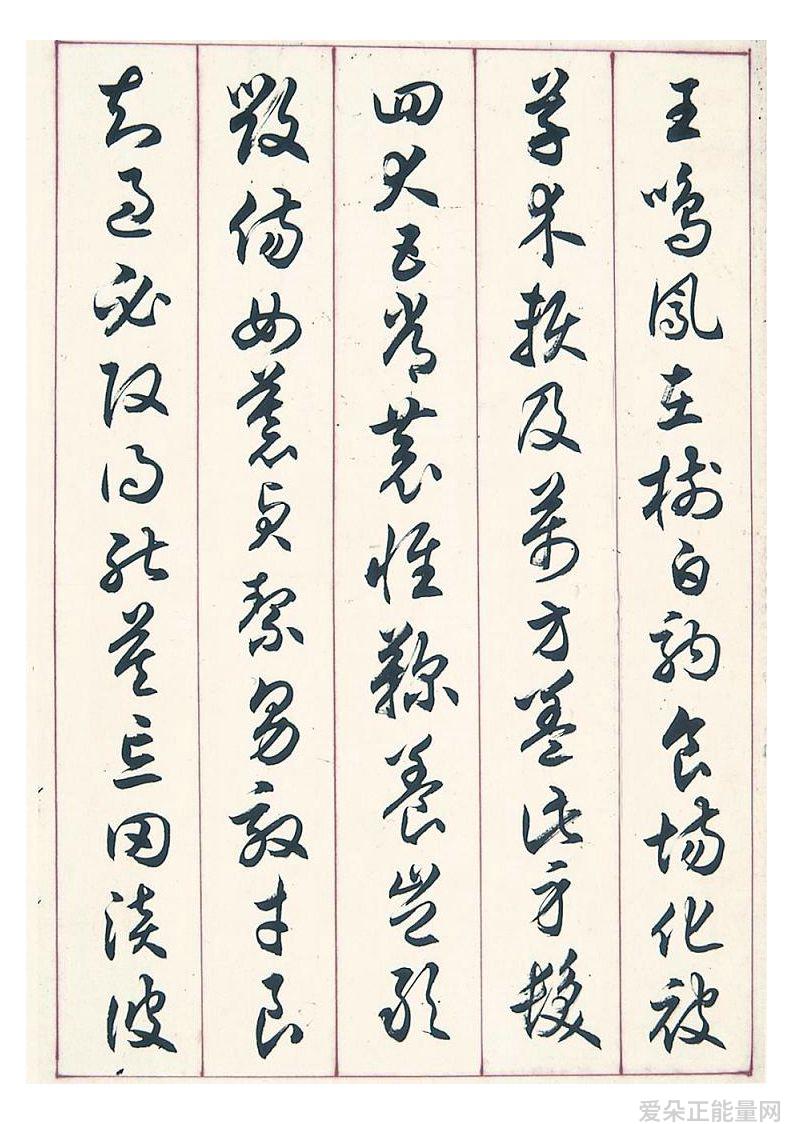 王鳴鳳在樹白駒食場化被
草木賴及萬方蓋此身髮
四大五常恭惟鞠養豈敢
毀傷女慕貞絜男效才良
知過必改得能莫忘罔談彼
爱朵正能量网